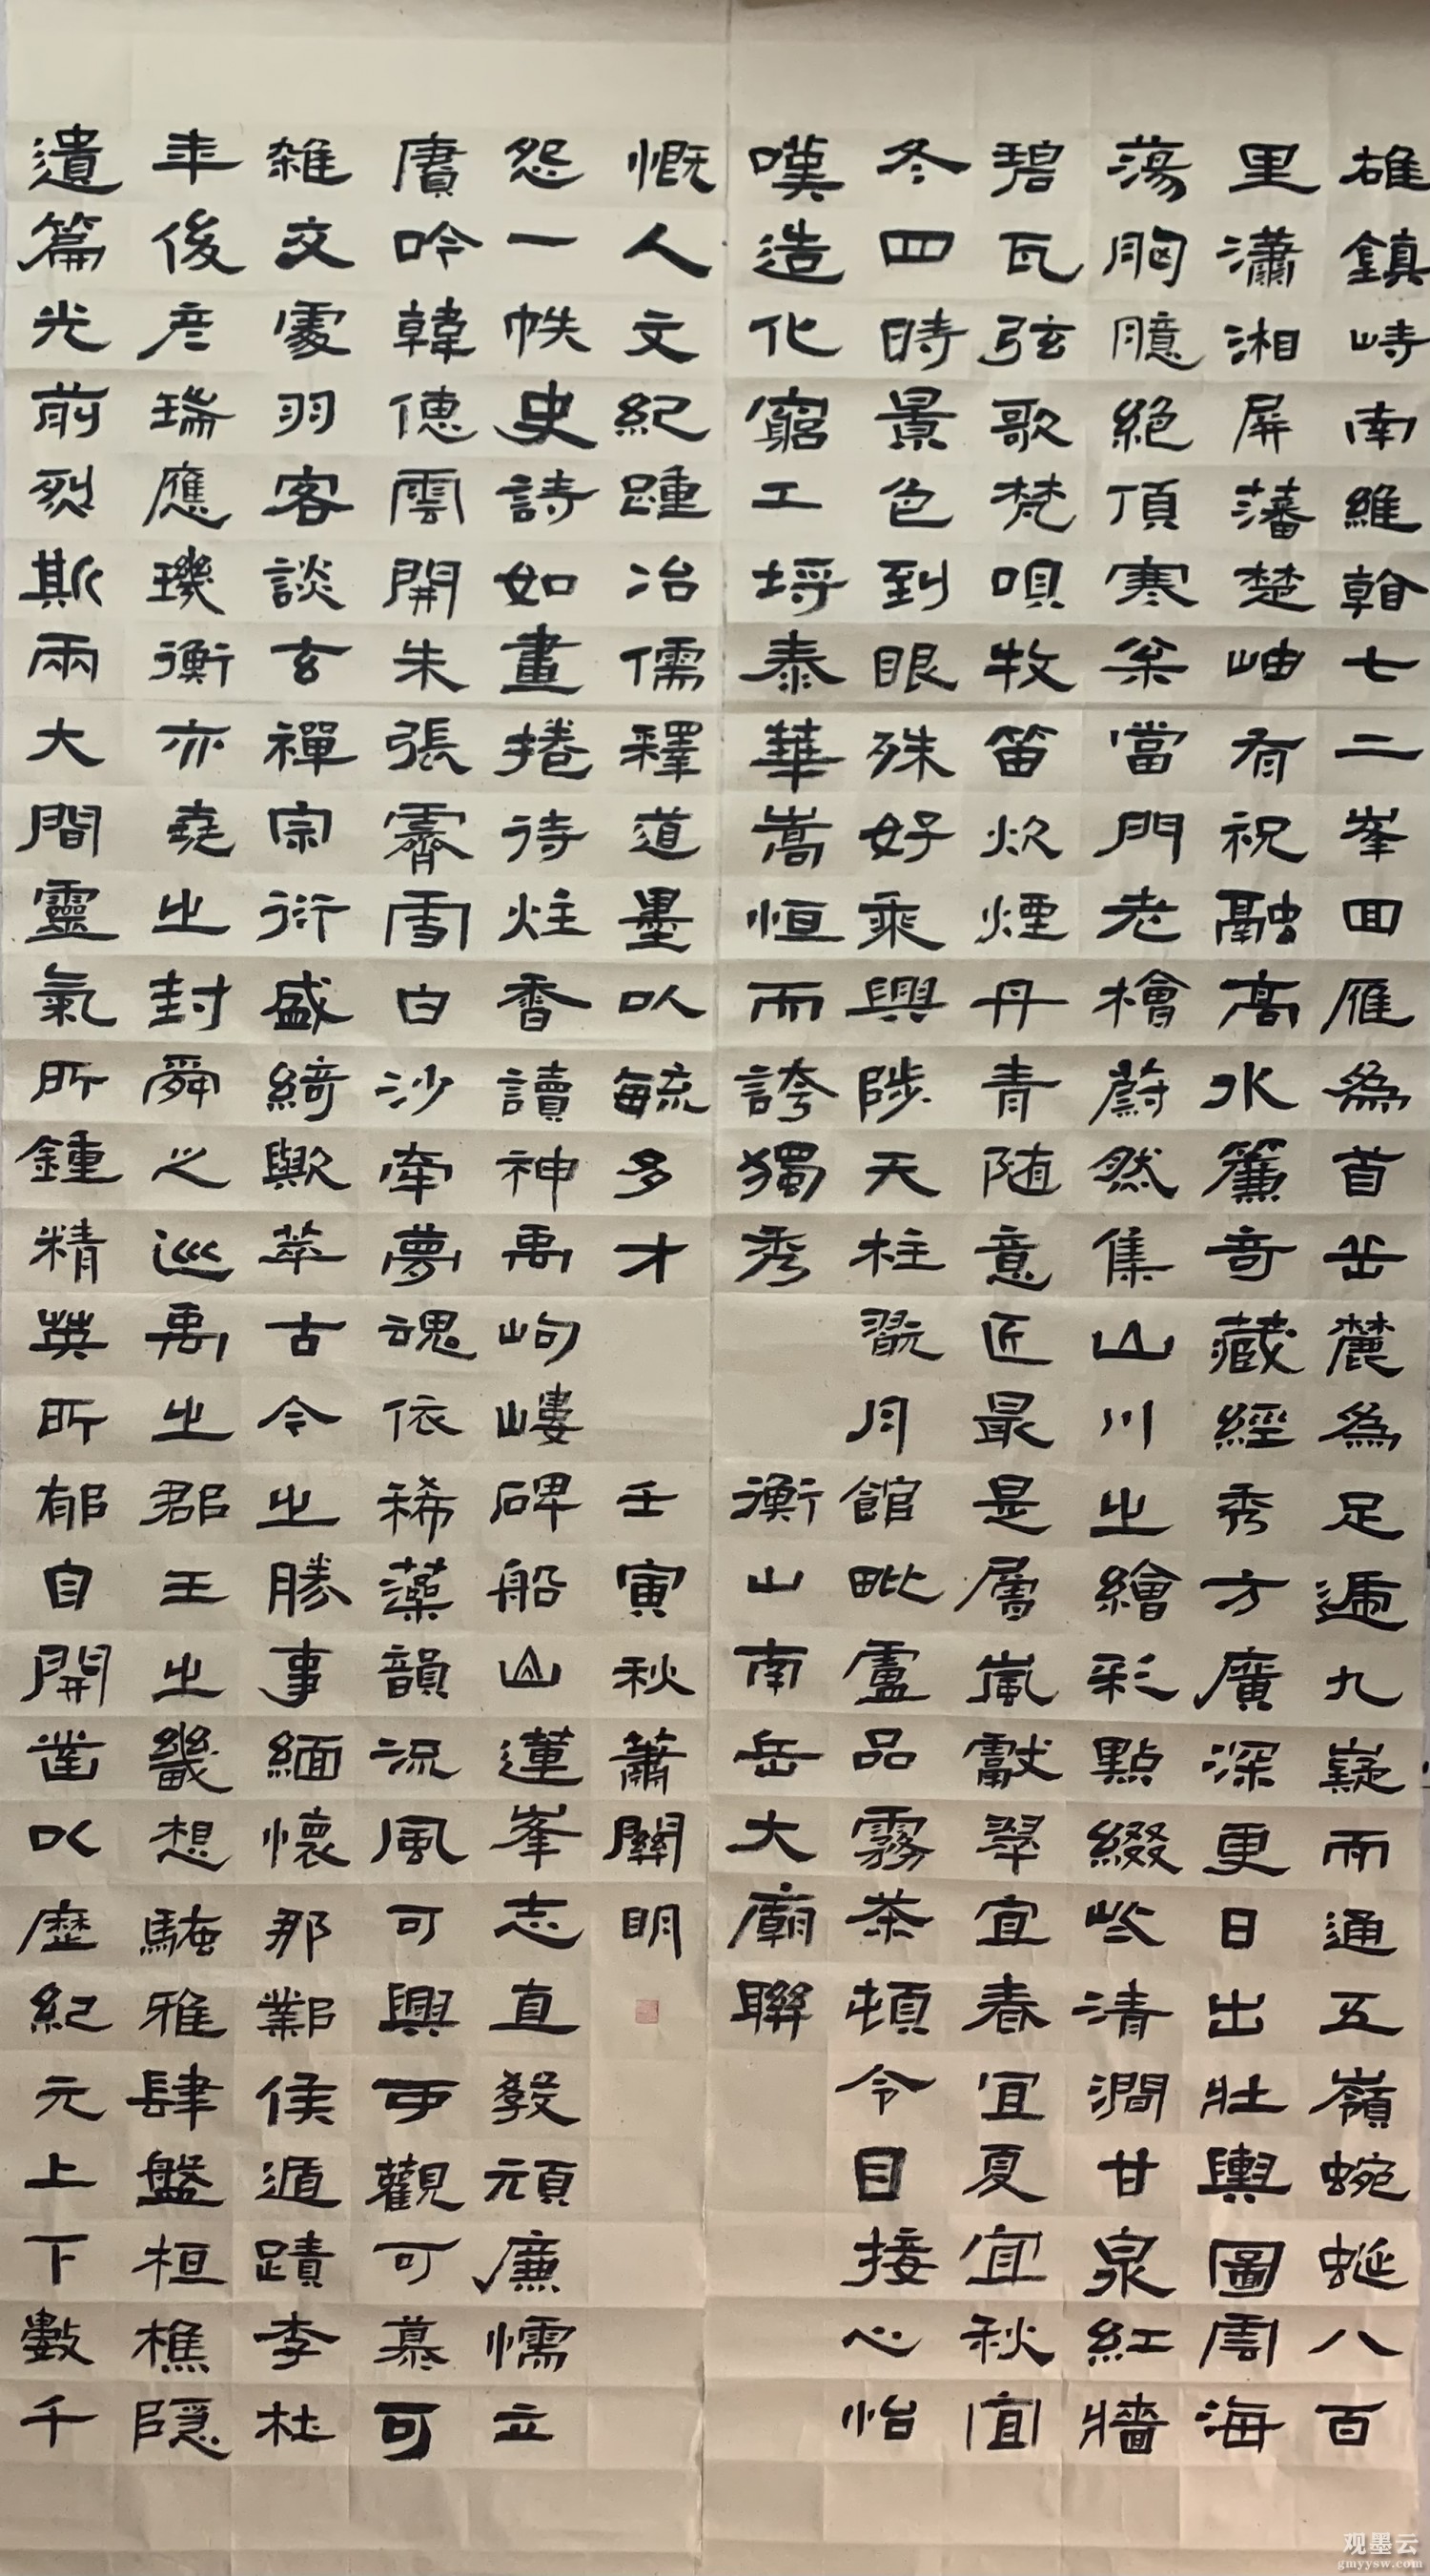 雄鎮峙南維翰七二峯回雁為首岳麓為足遞九嶷而通五嶺蜿蜒八百
里瀟湘屏藩楚岫有祝融高水簾奇藏經秀方廣深更日出壯輿圖雲海
蕩胸臆絕頂寒枀當門老檜蔚然集山川之繪彩點綴些清澗甘泉紅牆
碧瓦弦歌梵唄牧笛炊煙丹青随意匠最是層嵐獻翠宜春宜夏宜秋宜
冬四時景色到眼殊好乘興陟天柱翫月館毗盧品霧茶頓令目接心怡
嘆造化窮工埒泰華嵩恒而誇獨秀
衡山南岳大廟聯
遺篇光前烈斯兩大間靈氣所鍾精英所郁自開鑿以歷紀元上下數千
年後彥瑞應璣衡亦堯之封舜之巡禹之郡王之畿想騷雅肆盤桓樵隱
雜交處羽客談玄禪宗衍盛綺歟萃古今之勝事緬懷那鄴侯遁蹟李杜
賡吟韓德雲開朱張霽雪白沙牽夢魂依稀藻韻流風可興可觀可慕可
怨一帙史詩如畫捲待炷香讀神禹岣嶁碑船山蓮峯志直教頑廉懦立
慨人文紀踵冶儒釋道墨以毓多才
壬寅秋蕭關明
观墨云
gmyysw.com